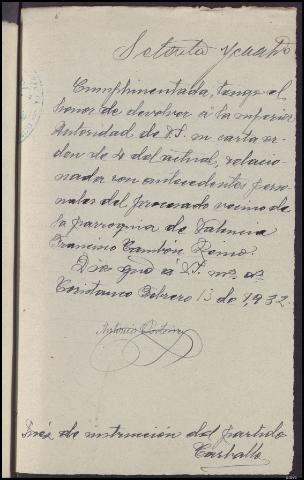 Setenta y cuatro
Cumplimentada, tengo el
honor de devolver à la superior
Autoridad de V.S. su carta or-
den de 4 del actual, relacio-
nada con antecedentes perso-
nales del procesado vecino de
la parroquia de Valencia
Francisco Cambón Reino.
Dios gue a V.S. ms. as.
Coristanco Febrero 13 de 1,932
Antonio
Juez de instrucción del partido
Carballo